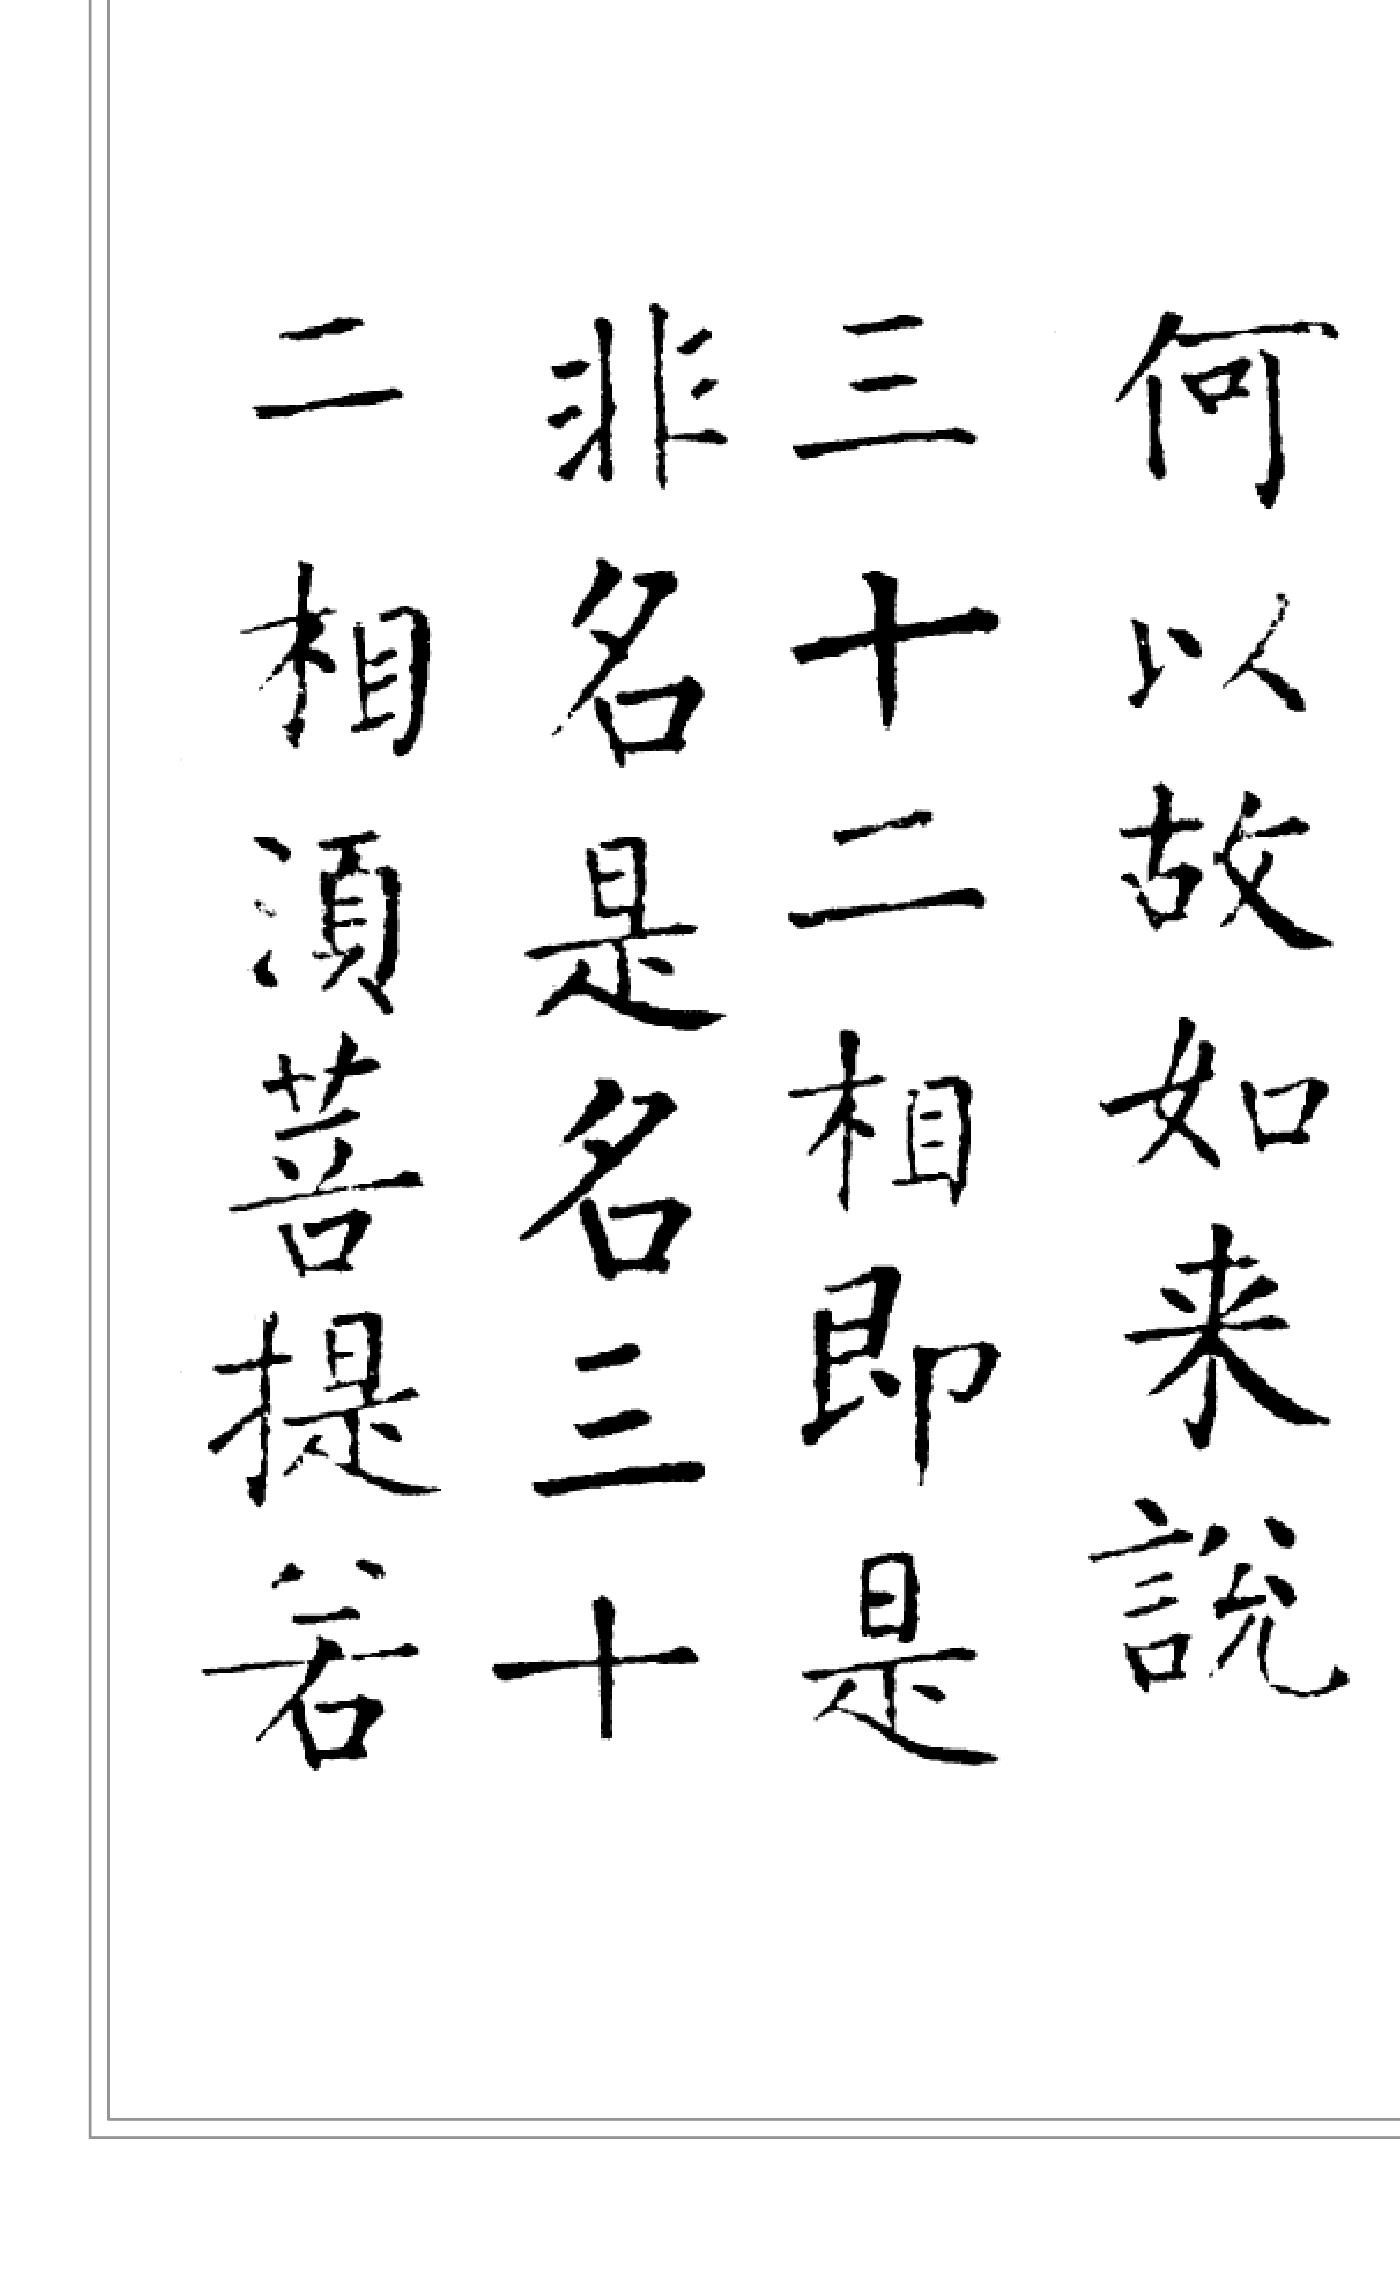 何以故如来說
三十二相即是
非名是名三十
二相湏菩提若